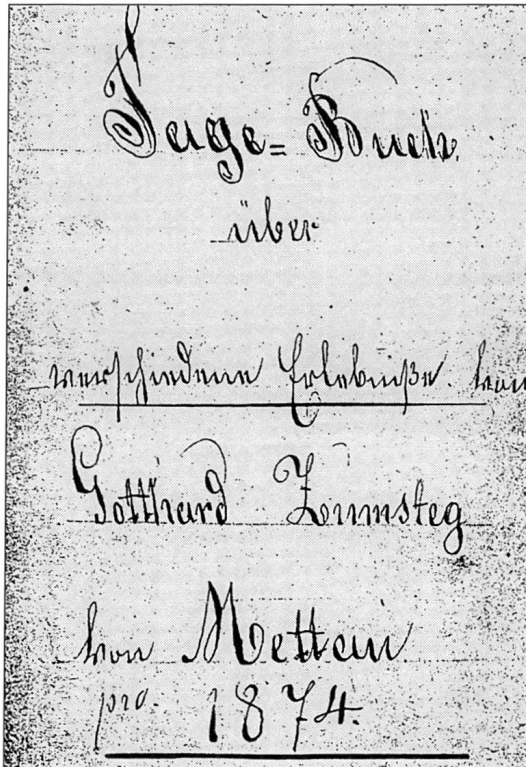 Tage=Buch.
über
verschiedene Erlebniße von
Gotthard Zumsteg
von Mettau
pro. 1874.